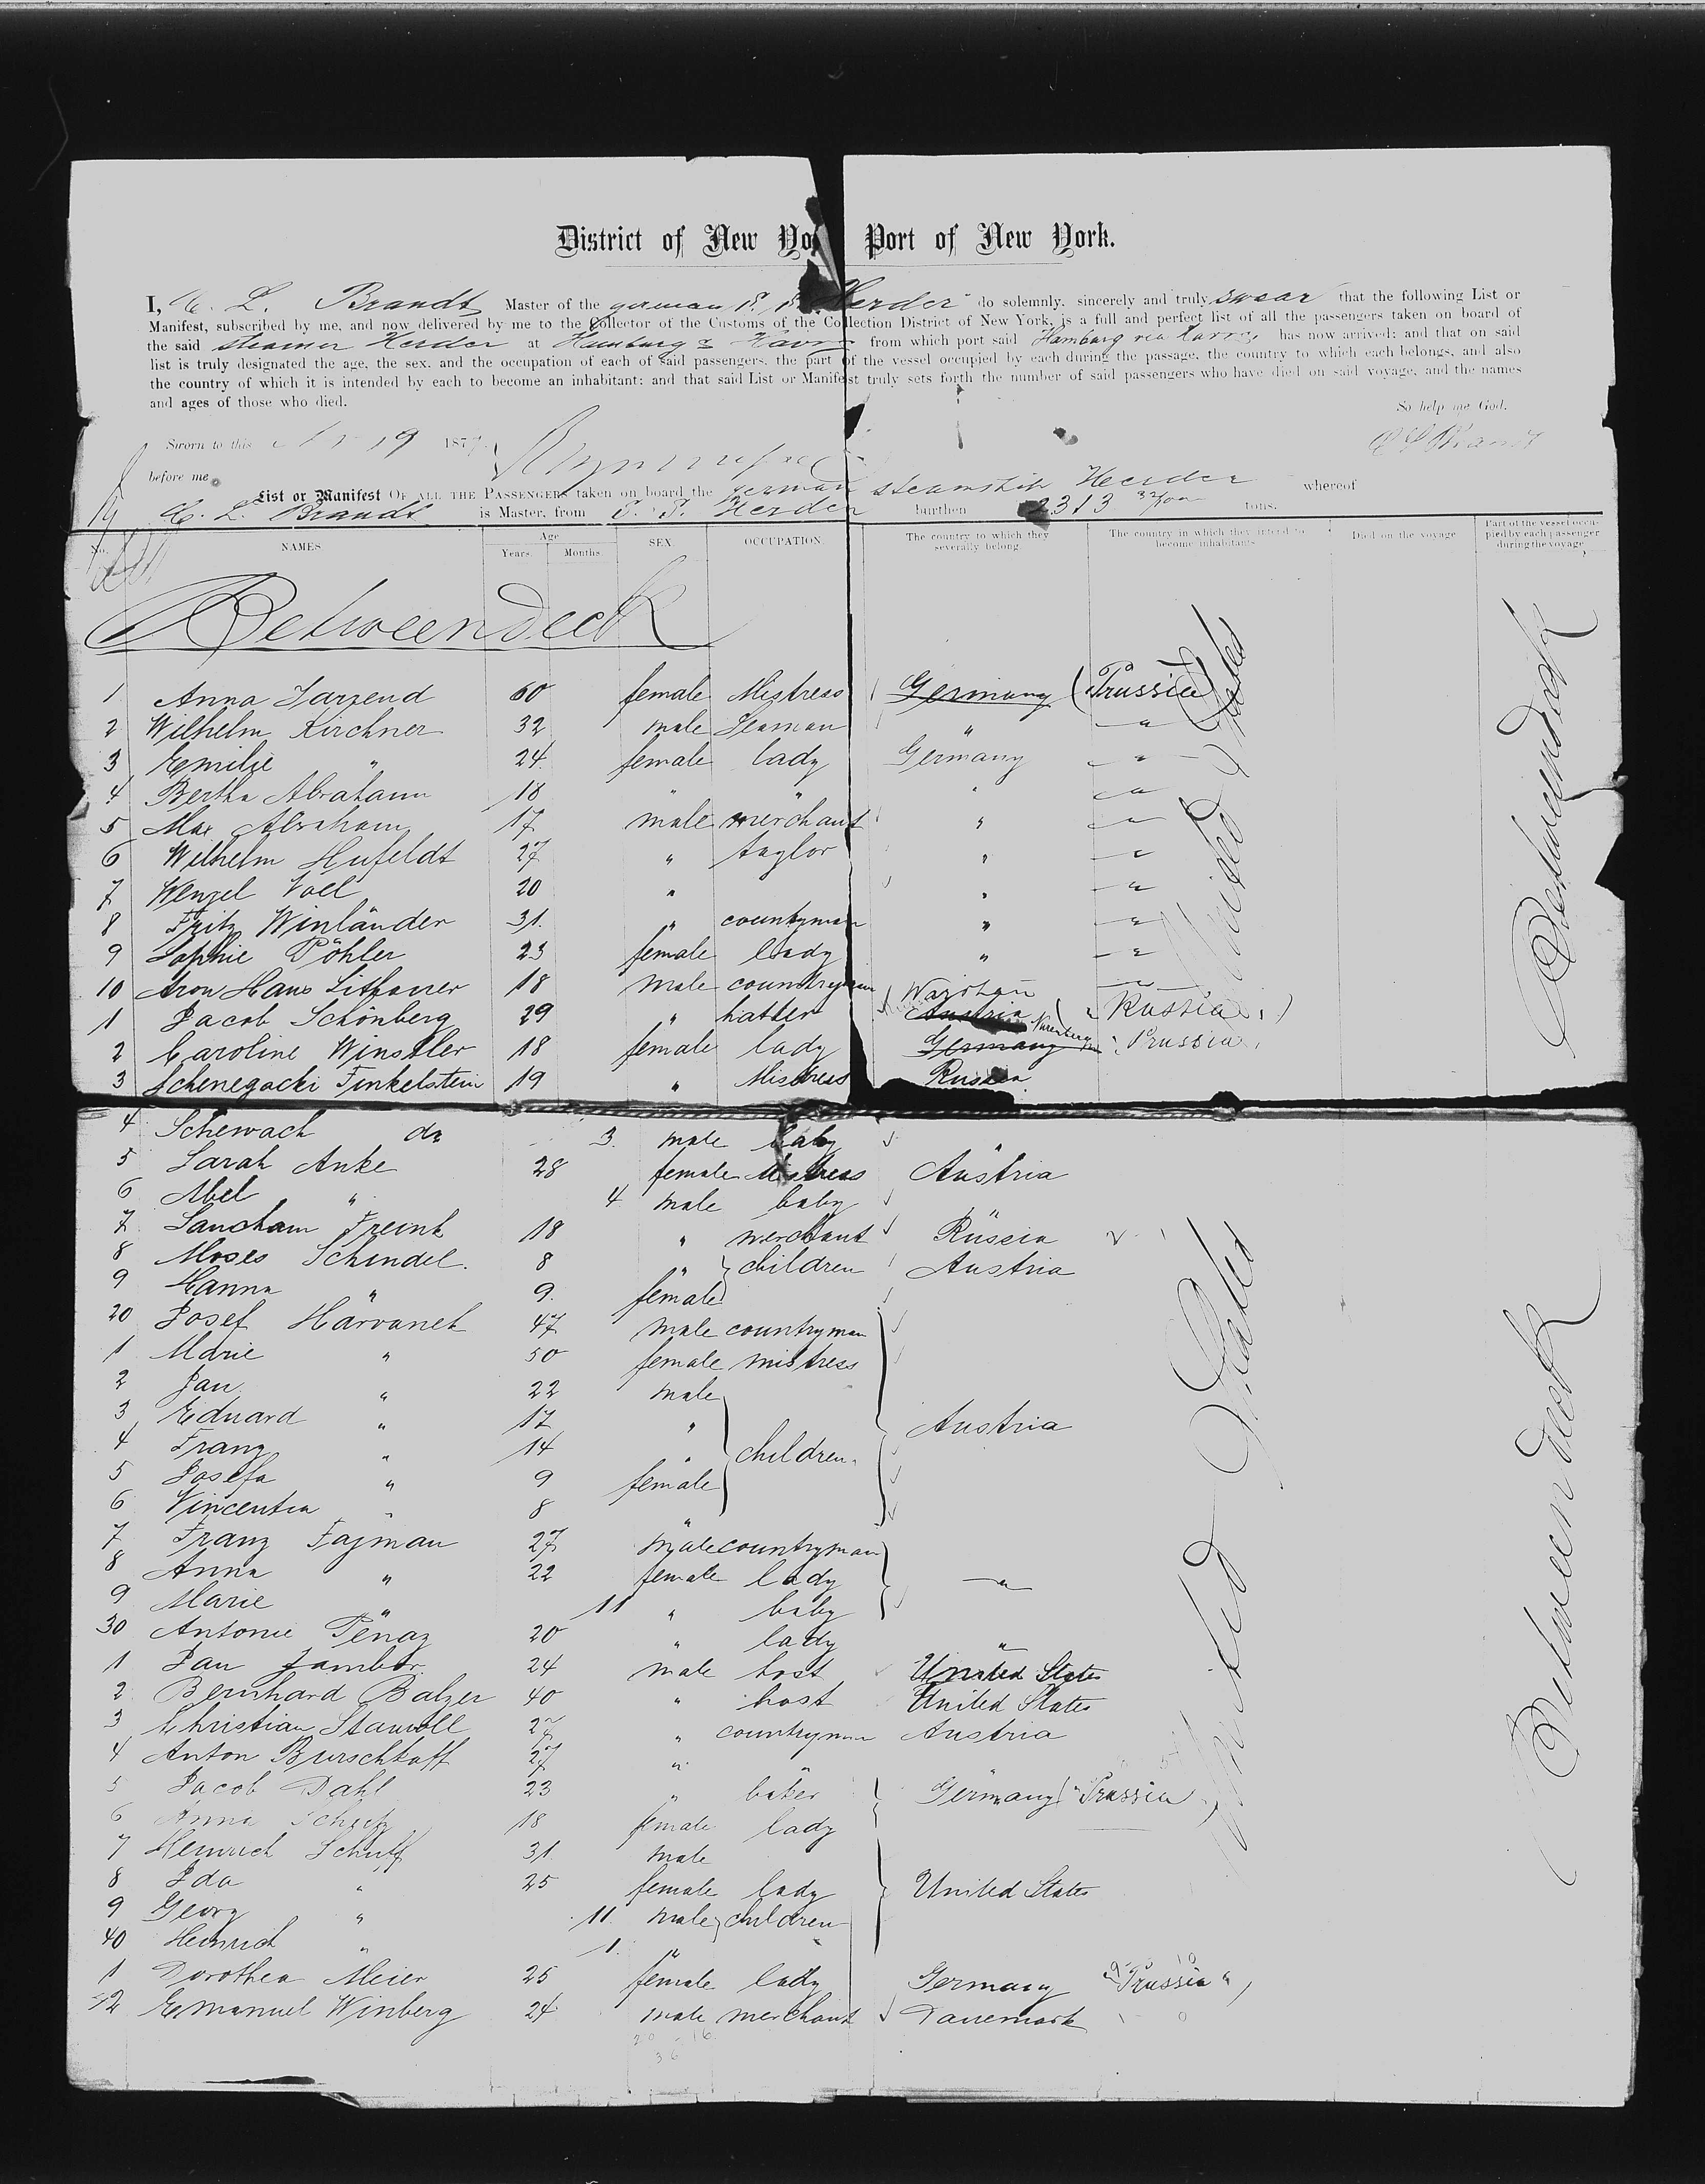 District of New Yo Port of New York.
I, H. L. Brandt Master of the german S. S. "Herder" do solemnly, sincerely and truly swear that the following List or
Manifest, subscribed by me, and now delivered by me to the Collector of the Customs of the Collection District of New York, is a full and perfect list of all the passengers taken on board of
the said steamer Herder at Hamburg & Havre from which port said Hamburg via Havre, has now arrived; and that on said
list is truly designated the age, the sex, and the occupation of each of said passengers, the part of the vessel occupied by each during the passage, the country to which each belongs, and also
the country of which it is intended by each to become an inhabitant; and that said List or Manifest truly sets forth the number of said passengers who have died on said voyage, and the names
and ages of those who died.
So help me God.
Sworn to this 19 187
before me
List or Manifest OF ALL THE PASSENGERS taken on board the german steamship Herder whereof
H. L. Brandt is Master, from S. S. Herder burthen 2313 32/100 tons.
No. NAMES. Age Years. Months. SEX. OCCUPATION. The country to which they severally belong. The country in which they intend to become inhabitants. Died on the voyage. Part of the vessel occupied by each passenger during the voyage.
Betweendeck
1 Anna 60 female Mistress Germany (Prussia)
2 Wilhelm Kirchner 32 male Seaman " "
3 Emilie " 24 female lady Germany "
4 Bertha Abraham 18 " " " "
5 Max Abraham 17 male merchant " "
6 Wilhelm Hufeldt 27 " taylor " "
7 Wenzel Voel 20 " " "
8 Fritz Winländer 31 " countryman " "
9 Sophie Pöhler 23 female lady " "
10 Aron Hans Lithauer 18 male countryman "
1 Jacob Schönberg 29 " hatter Austria "Russia"
2 Caroline Winstler 18 female lady Germany "Prussia"
3 Schenegacki Finkelstein 19 " Mistress Russia
4 Schewach do 3 male baby "
5 Sarah Anke 28 female Mistress Austria
6 Abel " 4 male baby "
7 Sancham Freink 18 " merchant Russia
8 Moses Schindel 8 " children Austria
9 Hanna " 9 female
20 Josef Harvanek 47 male countryman
1 Marie " 50 female mistress
2 Jan " 22 male
3 Eduard " 17 " Austria
4 Franz " 14 " children
5 Josefa " 9 female
6 Vincentia " 8 "
7 Franz Fajman 27 male countryman
8 Anna " 22 female lady "
9 Marie " 11 " baby
30 Antonie Pénaz 20 " lady "
1 Jan Jambor 24 male host United States
2 Bernhard Balzer 40 " host United States
3 Christian Stawoll 27 " countryman Austria
4 Anton Burschkaff 27 " " "
5 Jacob Dahl 23 " baker Germany "Prussia"
6 Anna Schutz 18 female lady
7 Heinrich Schuff 31 male
8 Ida " 25 female lady United States
9 Georg " 11 male children
40 Heinrich " 1 "
1 Dorothea Meier 25 female lady Germany "Prussia"
42 Emanuel Winberg 24 male merchant Danemark
20 - 16
36
United States
United States
Betweendeck
Betweendeck